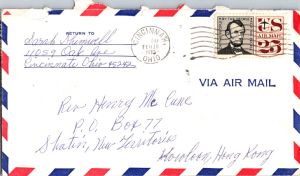 RETURN TO
Sarah Shumwell
11059 Oak Ave
Cincinnati Ohio 45242
CINCINNATI
OHIO
US
AIR MAIL
25
VIA AIR MAIL
Rev Henry Mc Cune
P.O. Box 77
Shatin, New Territories
Kowloon, Hong Kong